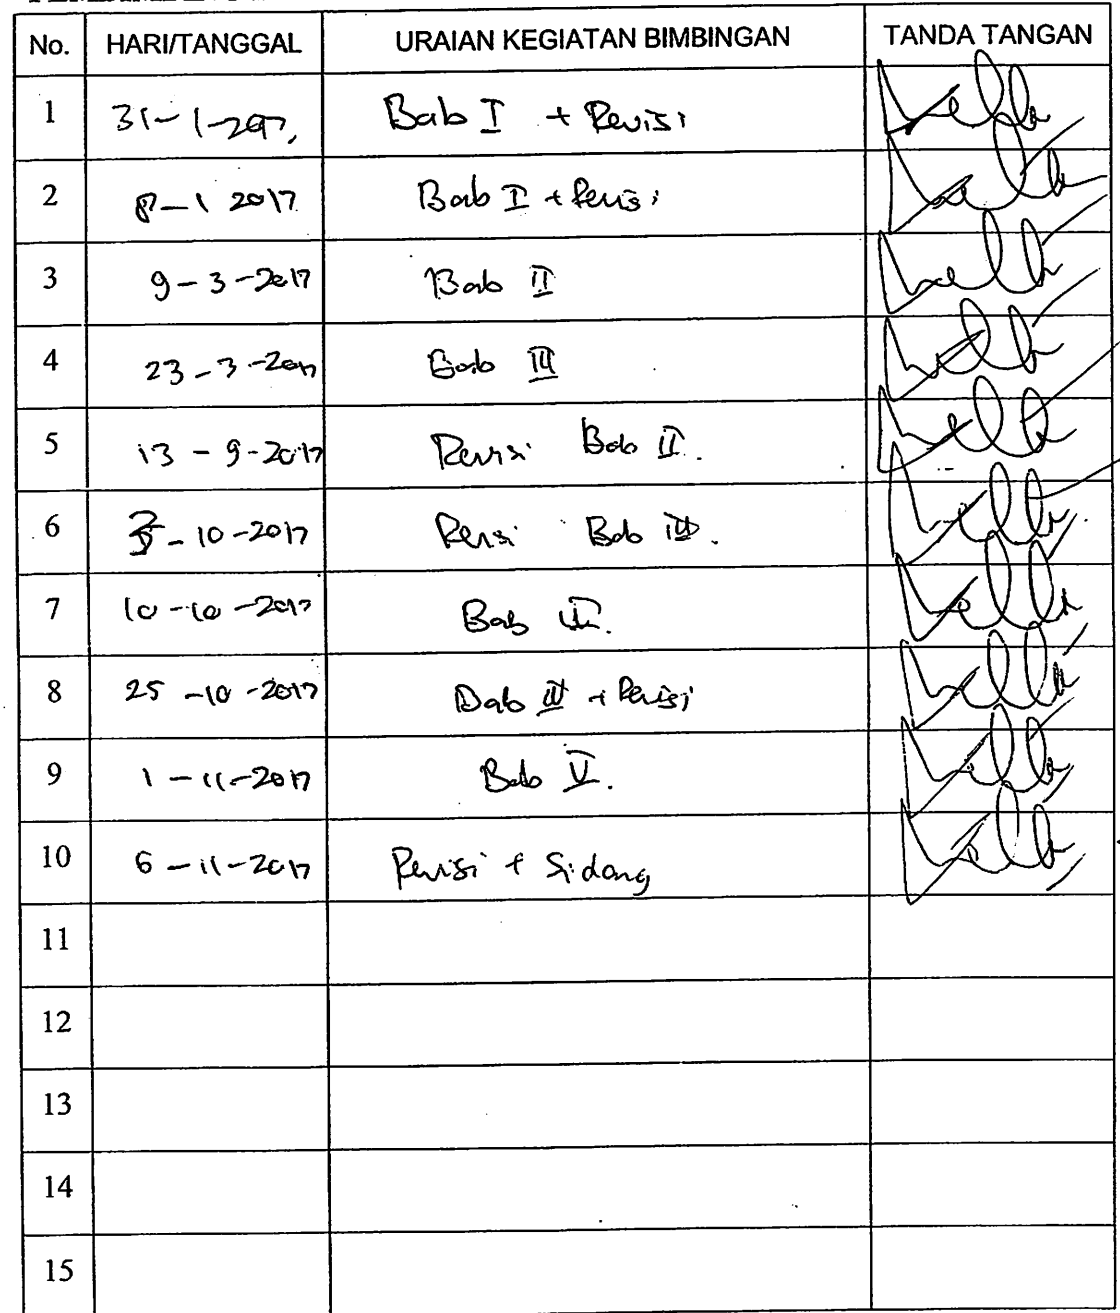 No. HARI/TANGGAL URAIAN KEGIATAN BIMBINGAN TANDA TANGAN
1 31-1-2017, Bab I + Revisi
2 8-1 2017 Bab I + Revisi
3 9-3-2017 Bab II
4 23-3-2017 Bab III
5 13-9-2017 Revisi Bab II.
6 -10-2017 Revisi Bab
7 10-10-2017 Bab
8 25-10-2017 Bab + Revisi
9 1-11-2017 Bab V.
10 6-11-2017 Revisi + Sidang
11
12
13
14
15